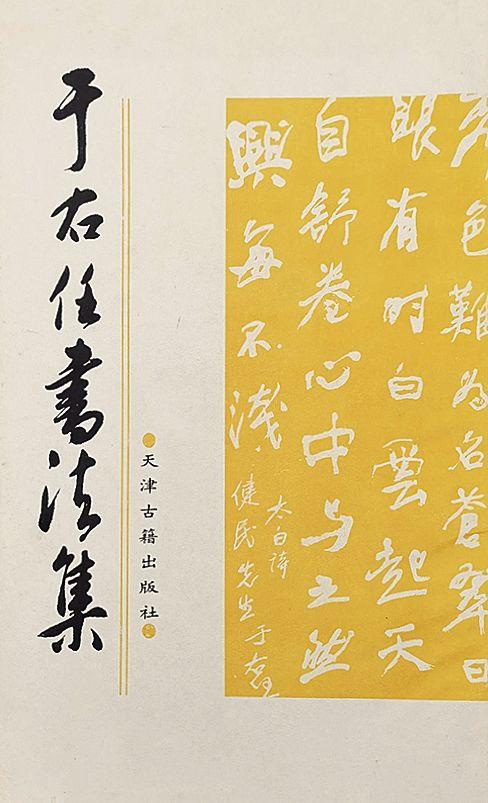 于右任書法集
天津古籍出版社
秀色難為名蒼翠日
眼有时白雲起天
自舒卷心中与之然
興每不淺
太白詩
健民先生于右任